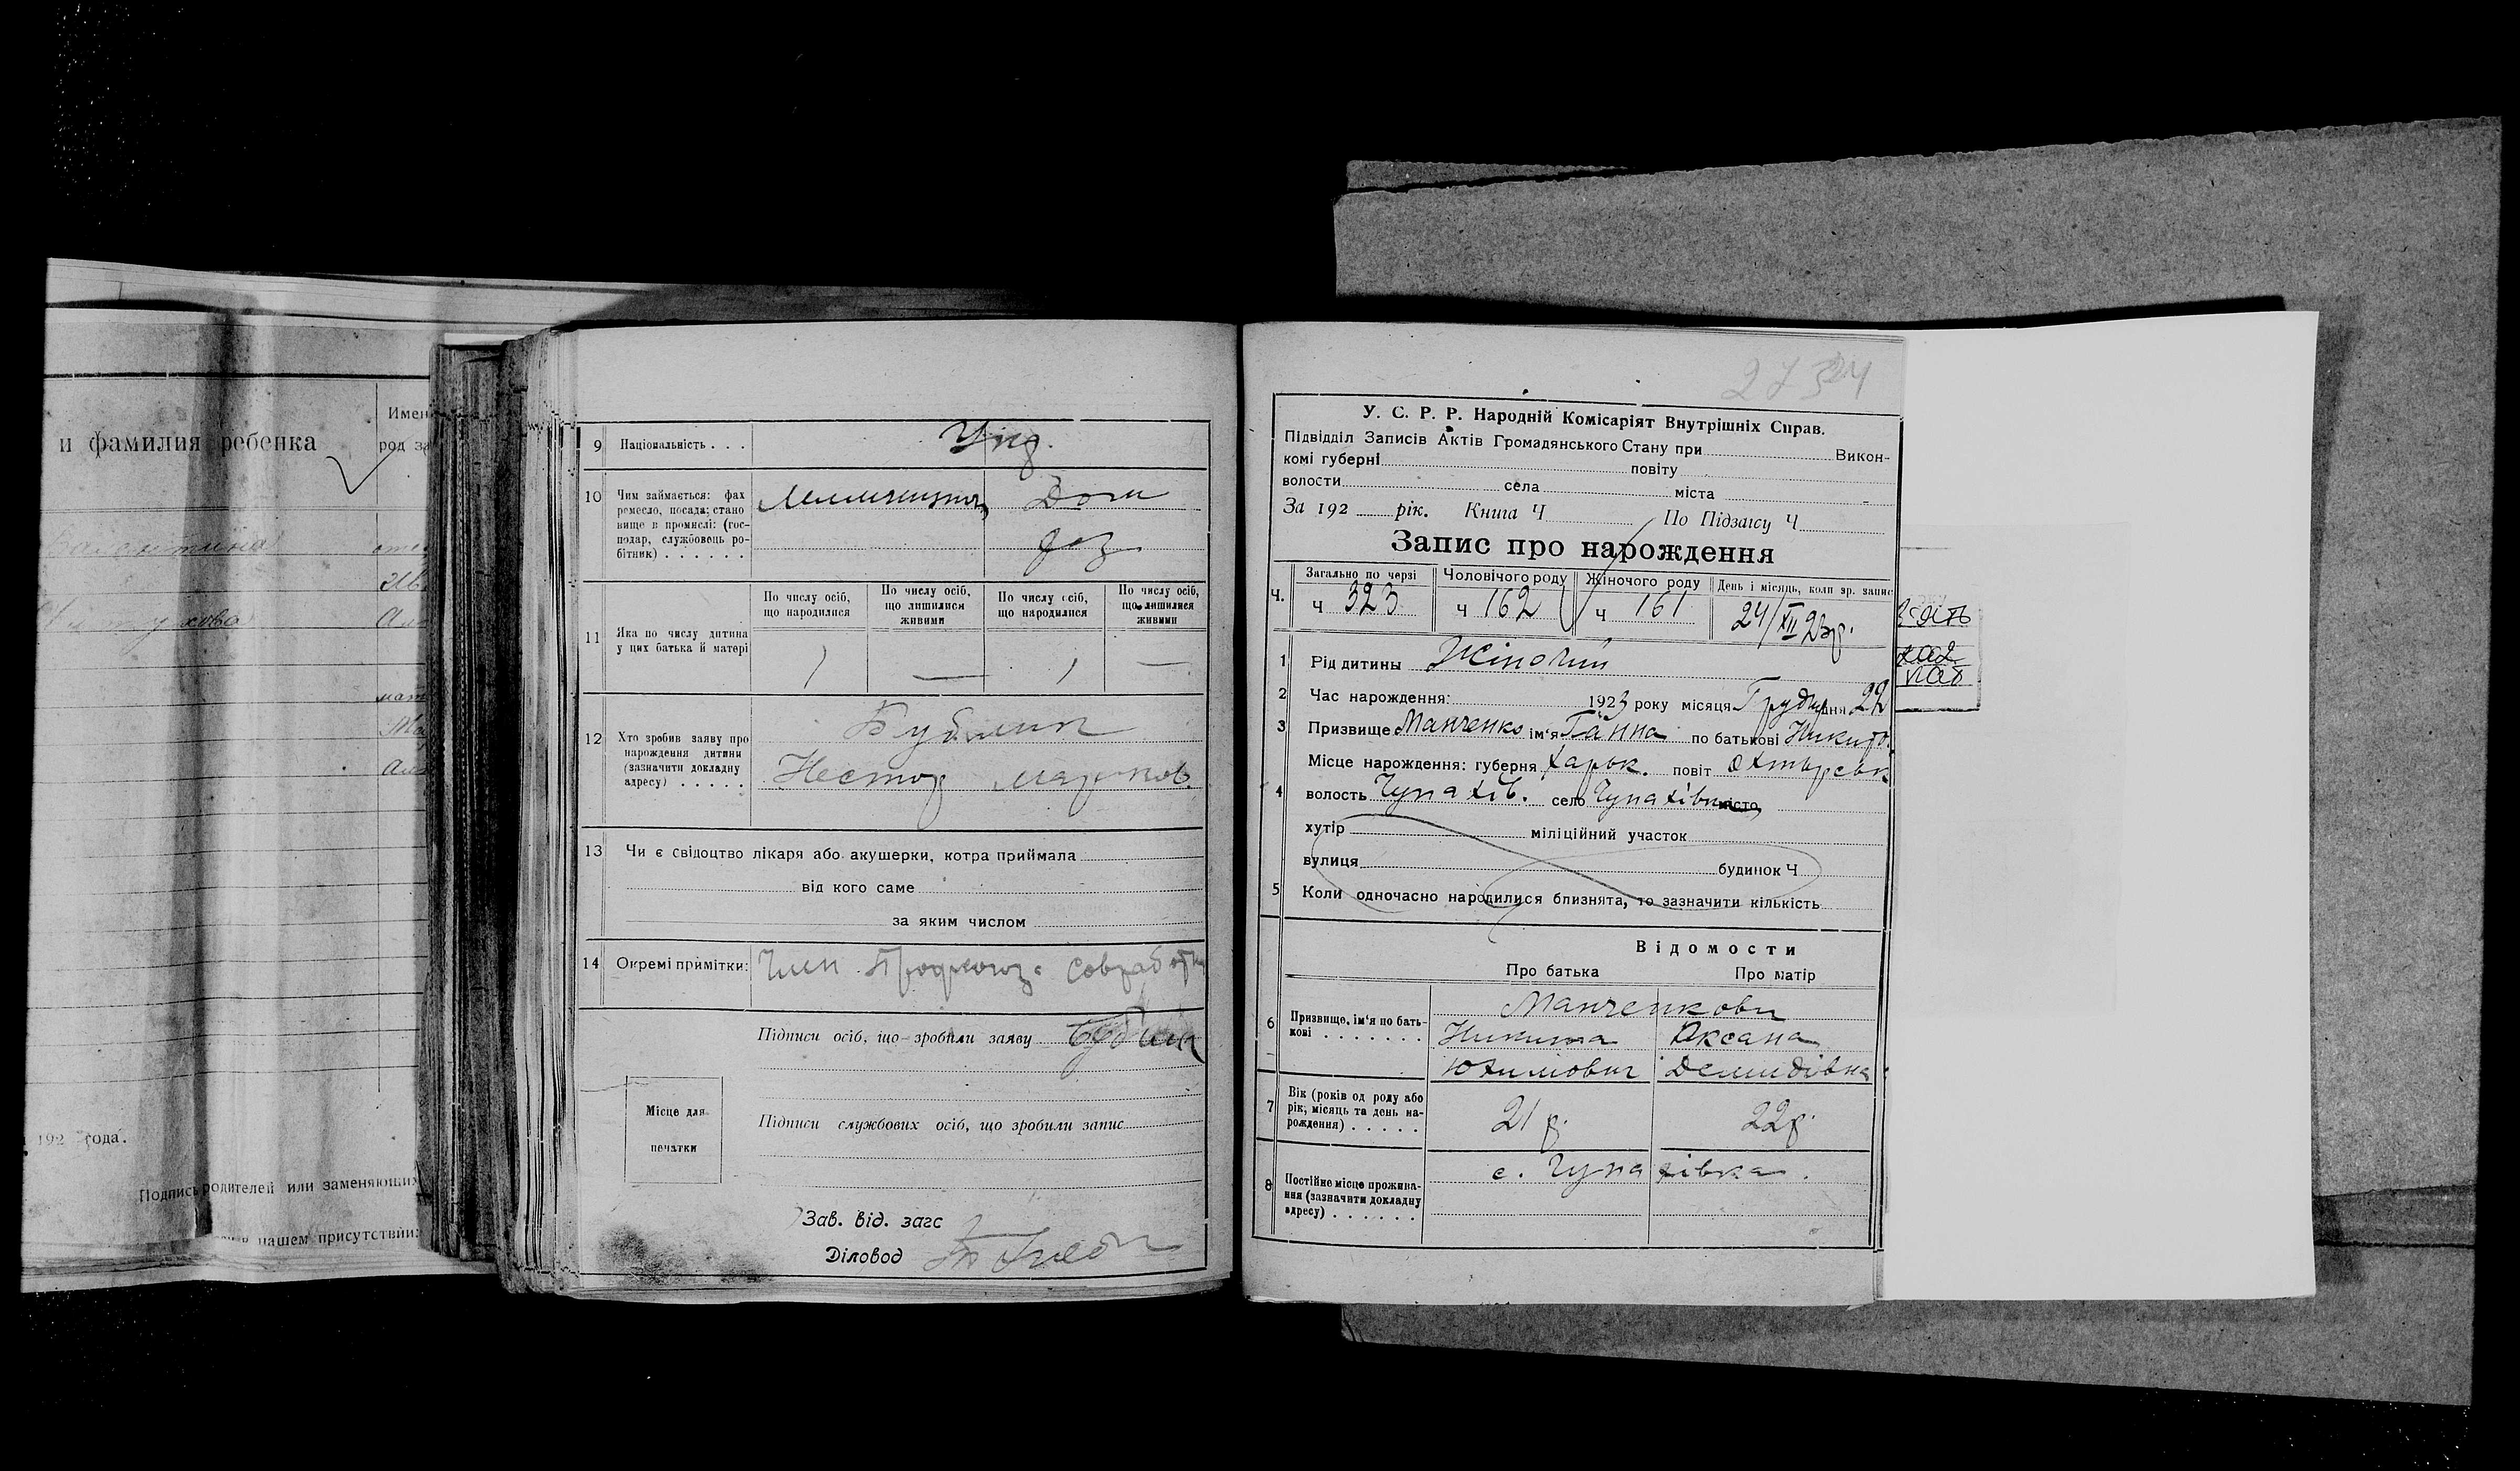 и фамилия ребенка
Имен
род за
192 года.
Подпись родителей или заменяющих
в нашем присутствии:
9 Національність . . . Укр.
10 Чим займається: фах
ремесло, посада; стано
вище в промислі: (гос-
подар, службовець ро-
бітник) . . . . . .
Дом
гоз
По числу осіб, що народилися
По числу осіб, що лишилися живими
По числу осіб, що народилися
По числу осіб, що лишилися живими
11 Яка по числу дитина
у цих батька й матері
1 — 1 —
12 Хто зробив заяву про
нарождення дитини
(зазначити докладну
адресу) . . . . .
Бублик
Нестор Марков.
13 Чи є свідоцтво лікаря або акушерки, котра приймала
від кого саме
за яким числом
14 Окремі примітки: Член Профсоюз. Совработн
Підписи осіб, що зробили заяву Бублик
Місце для
печатки
Підписи службових осіб, що зробили запис
Зав. від. загс
Діловод
27324
У. С. Р. Р. Народній Комісаріят Внутрішніх Справ.
Підвідділ Записів Актів Громадянського Стану при Викон-
комі губерні повіту
волости села міста
За 192 рік. Книга Ч По Підзагсу Ч
Запис про нарождення
Ч.
Загально по черзі
Ч 323
Чоловічого роду
Ч 162
Жіночого роду
Ч 161
День і місяць, коли зр. запис
24/XII 23р.
1 Рід дитини Жіночий
2 Час нарождення: 1923 року місяця Грудня дня 22
3 Призвище Манченко ім'я Ганна по батькові Никит.
4 Місце нарождення: губерня Харьк. повіт Охтирськ
волость Чупахів. село Чупахівка місто
хутір міліційний участок
вулиця будинок Ч
5 Коли одночасно народилися близнята, то зазначити кількість
Відомости
Про батька Про матір
6 Призвище, ім'я по бать-
кові . . . . . . .
Манченкови
Никита Оксана
Юхимович Демидівна
7 Вік (років од роду або
рік, місяць та день на-
рождення) . . . . .
21 р. 22р.
8 Постійне місце прожива-
ння (зазначити докладну
адресу) . . . . . .
с. Чупахівка.